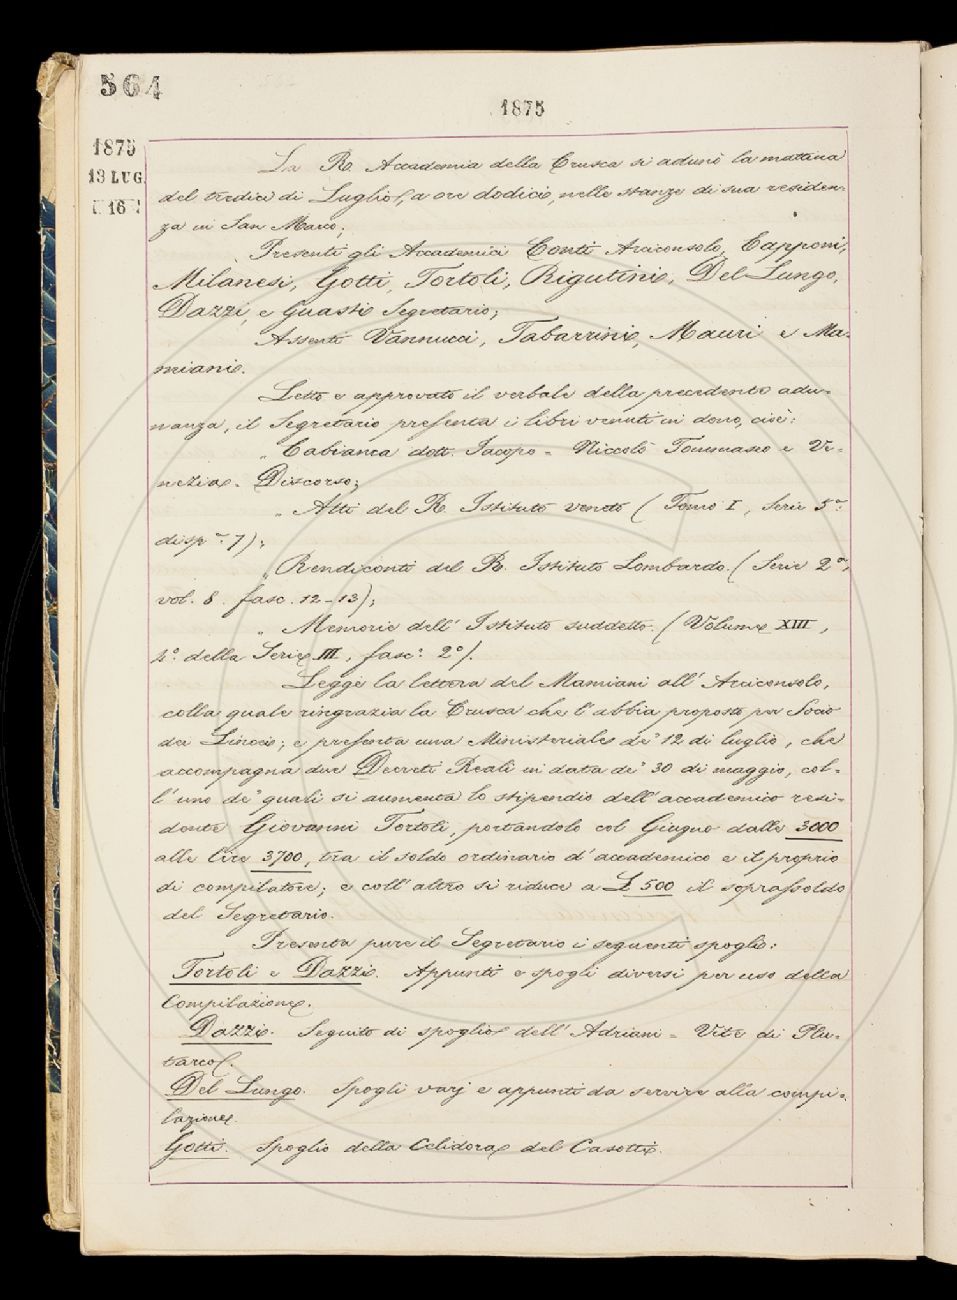 564
1875
1875
13 LUG.
16
La R. Accademia della Crusca si adunò la mattina
del tredici di Luglio, a ore dodici, nelle stanze di sua residen-
za in San Marco;
Presenti gli Accademici Conti Arciconsolo, Capponi,
Milanesi, Gotti, Tortoli, Rigutini, Del-Lungo,
Dazzi, e Guasti Segretario;
Assenti Vannucci, Tabarrini, Mauri e Ma-
miani.
Letto e approvato il verbale della precedente adu-
nanza, il Segretario presenta i libri venuti in dono, cioè:
„ Cabianca dott. Jacopo = Niccolò Tommaseo e Ve-
nezia. Discorso;
„ Atti del R. Istituto veneto ( Tomo I, Serie 5a.
dispa. 7);
„ Rendiconti del R. Istituto Lombardo. ( Serie 2a,
vol. 8. fasc. 12-13);
„ Memorie dell' Istituto suddetto. (Volume XIII,
4°. della Serie III, fasc°. 2°).
Legge la lettera del Mamiani all' Arciconsolo,
colla quale ringrazia la Crusca che l'abbia proposto per Socio
dei Lincei; e presenta una Ministeriale de' 12 di luglio, che
accompagna due Decreti Reali in data de' 30 di maggio, col-
l'uno de' quali si aumenta lo stipendio dell'accademico resi-
dente Giovanni Tortoli, portandolo col Giugno dalle 3000
alle lire 3700, tra il soldo ordinario d'accademico e il proprio
di compilatore; e coll'altro si riduce a L 500 il soprassoldo
del Segretario.
Presenta pure il Segretario i seguenti spogli:
Tortoli e Dazzi. Appunti e spogli diversi per uso della
Compilazione.
Dazzi. Seguito di spoglio dell' Adriani = Vite di Plu-
tarco.
Del Lungo. Spogli varj e appunti da servire alla compi-
lazione.
Gotti. Spoglio della Celidora del Casotti.